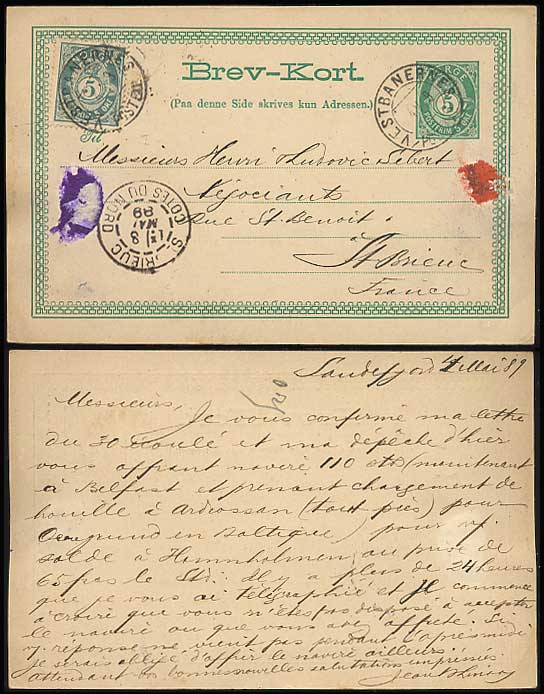 Brev-Kort.
(Paa denne Side skrives kun Adressen.)
NORGE
5
POSTFRIM 5 ØRE
VESTBANERNES
Til
Messieurs Henri & Ludovic Sebert
Négociants
Rue St. Benoit
à
St Brieuc
France
ST BRIEUC
8
MAI
89
COTES DU NORD
Sandefjord 4 Mai 89
Messieurs,
Je vous confirme ma lettre
du 30 écoulé et ma dépêche d'hier
vous offrant navire 110 stds (maintenant
à Belfast et prenant chargement de
houille à Ardrossan (tout près) pour
grund en Baltique) pour
solde à Hommholmen au prix de
65 pas le Std. Il y a plus de 24 heures
que je vous ai télégraphié et je commence
à croire que vous n'êtes pas disposé à accepter
le navire ou que vous avez affrété. Si
v/ réponse ne vient pas pendant l'après midi
je serais obligé d'offrir le navire ailleurs.
attendant vos bonnes nouvelles salutations empressées
Jean